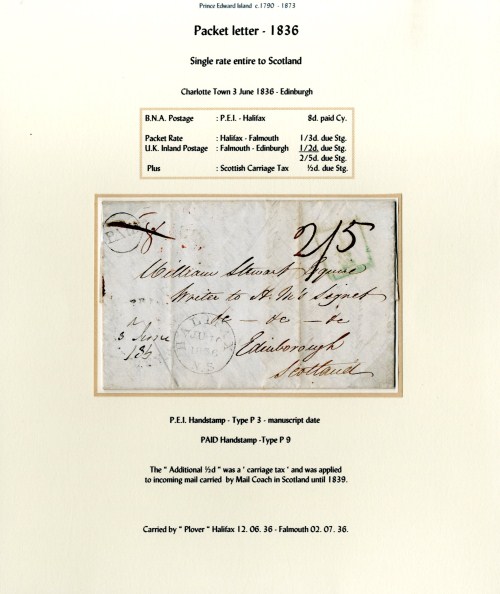 Prince Edward Island c.1790 - 1873
Packet letter - 1836
Single rate entire to Scotland
Charlotte Town 3 June 1836 - Edinburgh
B.N.A. Postage : P.E.I. - Halifax 8d. paid Cy.
Packet Rate : Halifax - Falmouth 1/3d. due Stg.
U.K. Inland Postage : Falmouth - Edinburgh 1/2d. due Stg.
2/5d. due Stg.
Plus : Scottish Carriage Tax ½d. due Stg.
8
2/5
William Stewart Esquire
Writer to H.M's Signet
&c - &c - &c
3 June
HALIFAX
1836
N.S
Edinborough
Scotland
P.E.I. Handstamp - Type P 3 - manuscript date
PAID Handstamp -Type P 9
The " Additional ½d " was a ' carriage tax ' and was applied
to incoming mail carried by Mail Coach in Scotland until 1839.
Carried by " Plover " Halifax 12. 06. 36 - Falmouth 02. 07. 36.